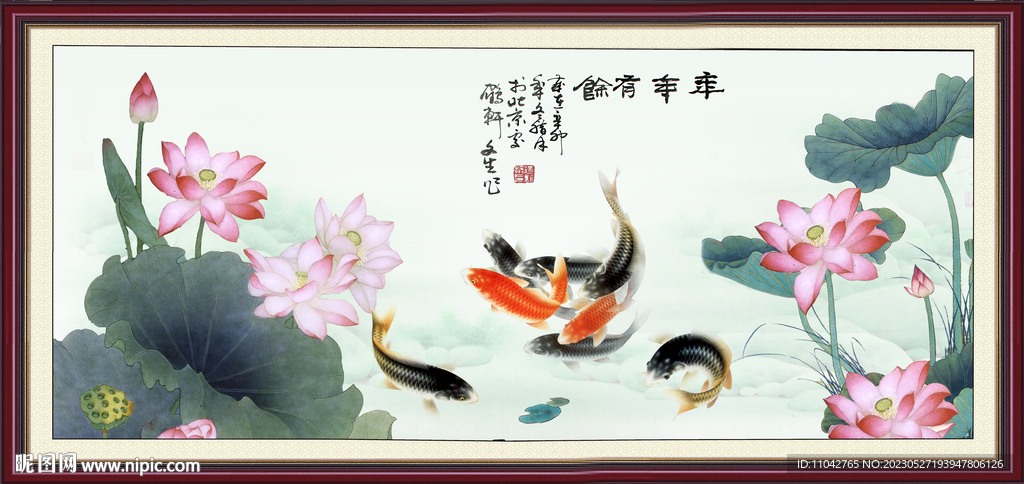 年年有餘
歲在辛卯
年冬腊月
於北京安
軒文生作
昵图网 www.nipic.com
ID:11042765 NO:20230527193947806126